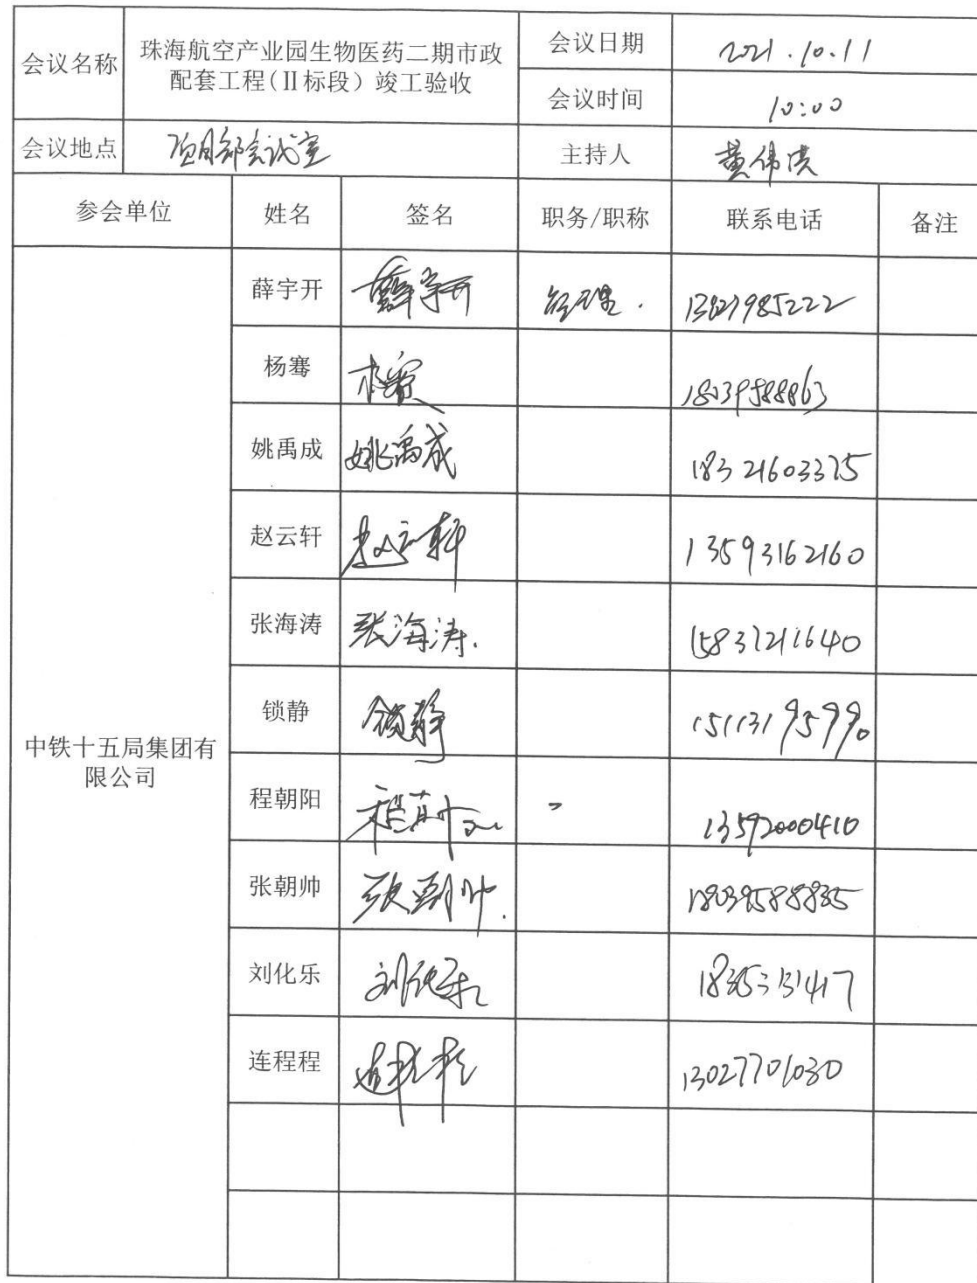 会议名称
珠海航空产业园生物医药二期市政
配套工程(Ⅱ标段)竣工验收
会议日期
2021.10.11
会议时间
10:00
会议地点
项目部会议室
主持人
黄伟洪
参会单位 姓名 签名 职务/职称 联系电话 备注
中铁十五局集团有
限公司
薛宇开 薛宇开 经理. 
杨骞 杨骞 18039588863
姚禹成 姚禹成 18321603375
赵云轩 赵云轩 13593162160
张海涛 张海涛. 15837211640
锁静 锁静 15113195990
程朝阳 程朝阳 - 13592000410
张朝帅 张朝帅. 18039588835
刘化乐 刘化乐
连程程 连程程 13027701030